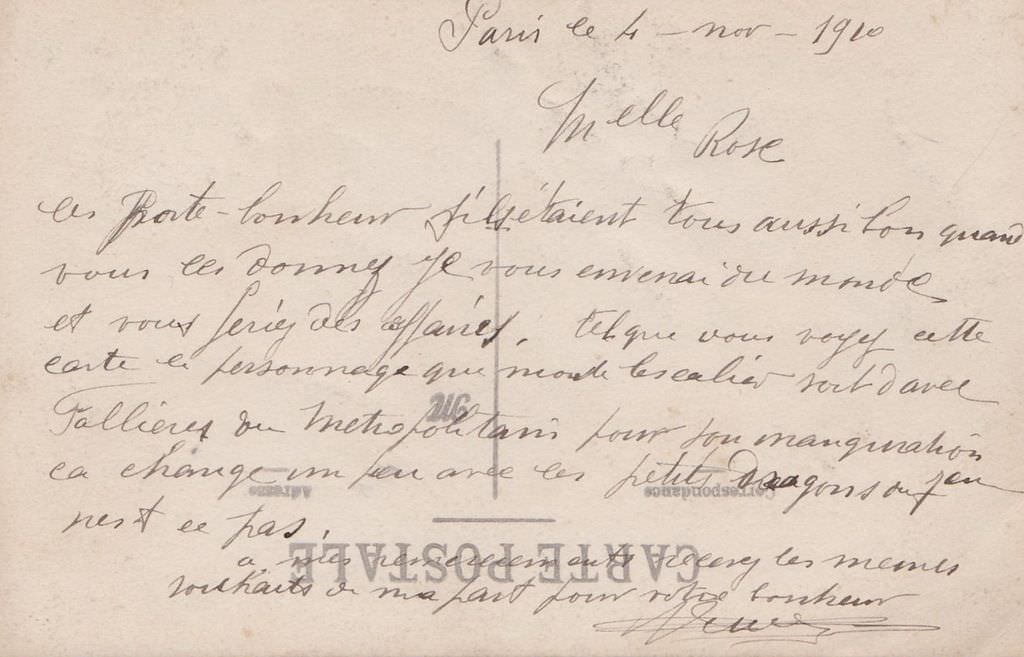 Paris le 4 - nov - 1910
Melle Rose
les Porte-bonheur s'ils étaient tous aussi bon quand
vous les donnez je vous envenai du monde
et vous feriez des affaires, tel que vous voyez cette
carte le personnage que monte lescalier sort d avec
Fallieres du Metropolitain pour son inauguration
ca change un peu avec les petits dragons du
nest ce pas.
a mes remerciements recevez les memes
souhaits de ma part pour votre bonheur
M
Correspondance
Adresse
CARTE POSTALE